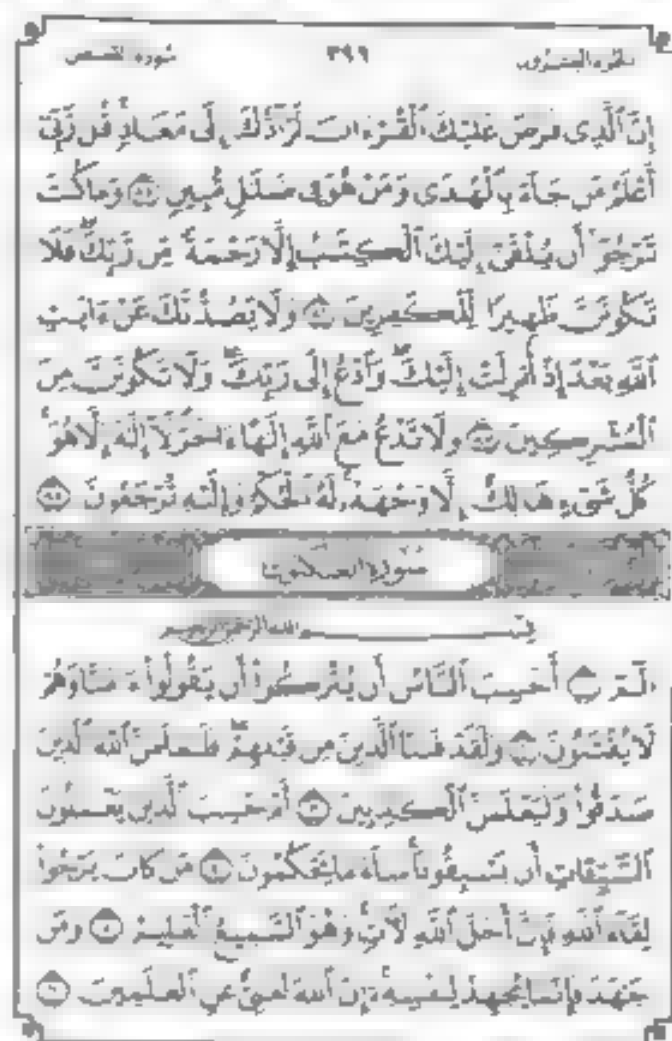 الجزء العشرون ٣٩٦ سورة القصص
إِنَّ ٱلَّذِى فَرَضَ عَلَيْكَ ٱلْقُرْءَانَ لَرَآدُّكَ إِلَىٰ مَعَادٍ قُل رَّبِّىٓ
أَعْلَمُ مَن جَآءَ بِٱلْهُدَىٰ وَمَنْ هُوَ فِى ضَلَٰلٍ مُّبِينٍ ٨٥ وَمَا كُنتَ
تَرْجُوٓا۟ أَن يُلْقَىٰٓ إِلَيْكَ ٱلْكِتَٰبُ إِلَّا رَحْمَةً مِّن رَّبِّكَ فَلَا
تَكُونَنَّ ظَهِيرًا لِّلْكَٰفِرِينَ ٨٦ وَلَا يَصُدُّنَّكَ عَنْ ءَايَٰتِ
ٱللَّهِ بَعْدَ إِذْ أُنزِلَتْ إِلَيْكَ وَٱدْعُ إِلَىٰ رَبِّكَ وَلَا تَكُونَنَّ مِنَ
ٱلْمُشْرِكِينَ ٨٧ وَلَا تَدْعُ مَعَ ٱللَّهِ إِلَٰهًا ءَاخَرَ لَآ إِلَٰهَ إِلَّا هُوَ
كُلُّ شَىْءٍ هَالِكٌ إِلَّا وَجْهَهُۥ لَهُ ٱلْحُكْمُ وَإِلَيْهِ تُرْجَعُونَ ٨٨
سورة العنكبوت
بسم الله الرحمن الرحيم
الٓمٓ ١ أَحَسِبَ ٱلنَّاسُ أَن يُتْرَكُوٓا۟ أَن يَقُولُوٓا۟ ءَامَنَّا وَهُمْ
لَا يُفْتَنُونَ ٢ وَلَقَدْ فَتَنَّا ٱلَّذِينَ مِن قَبْلِهِمْ فَلَيَعْلَمَنَّ ٱللَّهُ ٱلَّذِينَ
صَدَقُوا۟ وَلَيَعْلَمَنَّ ٱلْكَٰذِبِينَ ٣ أَمْ حَسِبَ ٱلَّذِينَ يَعْمَلُونَ
ٱلسَّيِّـَٔاتِ أَن يَسْبِقُونَا سَآءَ مَا يَحْكُمُونَ ٤ مَن كَانَ يَرْجُوا۟
لِقَآءَ ٱللَّهِ فَإِنَّ أَجَلَ ٱللَّهِ لَءَاتٍ وَهُوَ ٱلسَّمِيعُ ٱلْعَلِيمُ ٥ وَمَن
جَٰهَدَ فَإِنَّمَا يُجَٰهِدُ لِنَفْسِهِۦٓ إِنَّ ٱللَّهَ لَغَنِىٌّ عَنِ ٱلْعَٰلَمِينَ ٦